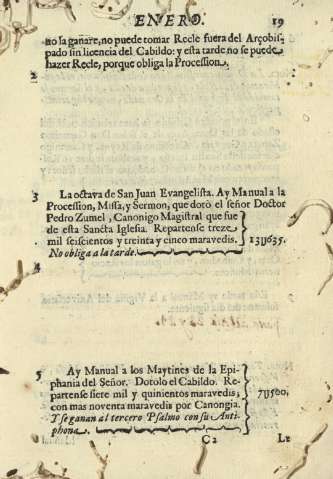 ENERO. 19
no la ganare, no puede tomar Recle fuera del Arçobis-
pado sin licencia del Cabildo: y esta tarde no se puede
hazer Recle, porque obliga la Procession.
2
3 La octava de San Juan Evangelista. Ay Manual a la
Procession, Missa, y Sermon, que dotò el señor Doctor
Pedro Zumel, Canonigo Magistral que fue
de esta Sancta Iglesia. Repartense treze
mil seiscientos y treinta y cinco maravedis. 13U635.
No obliga a la tarde.
4
5 Ay Manual a los Maytines de la Epi-
phania del Señor. Dotolo el Cabildo. Re-
partense siete mil y quinientos maravedis, 7U500,
con mas noventa maravedis por Canongia.
Y se ganan al tercero Psalmo con su Anti-
phona.
C2 La